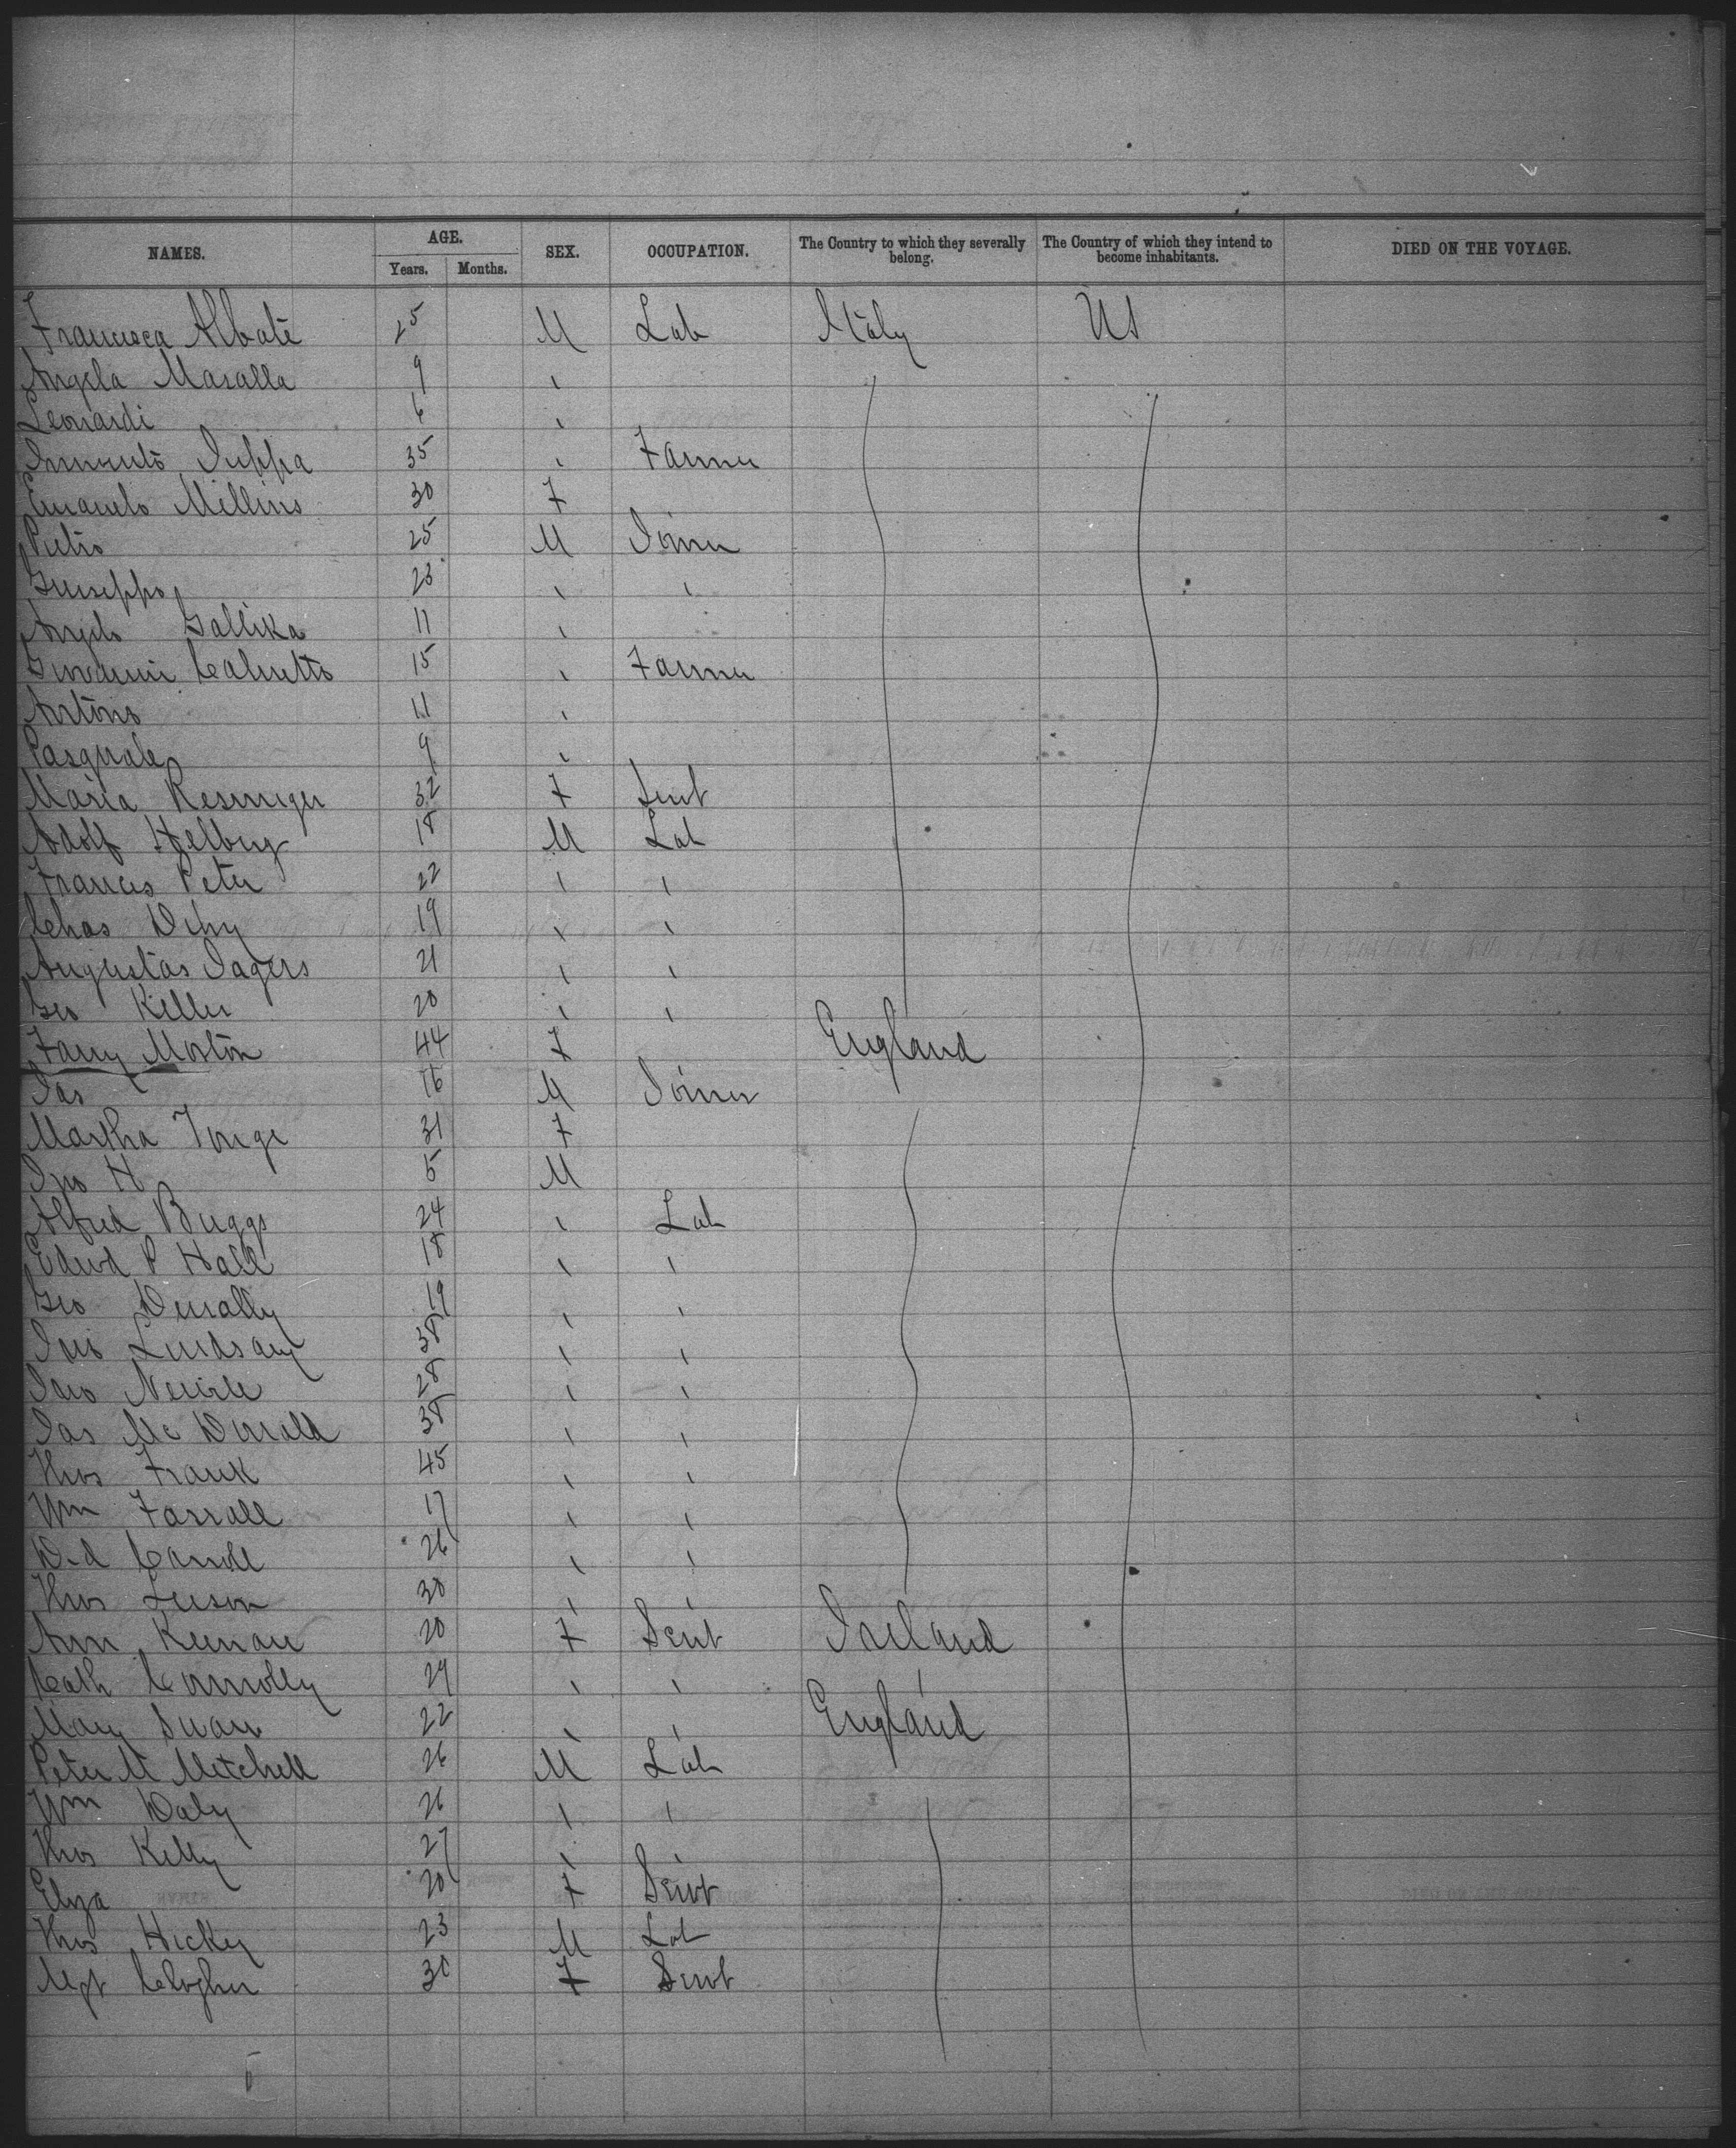 NAMES. AGE. SEX. OCCUPATION. The Country to which they severally belong. The Country of which they intend to become inhabitants. DIED ON THE VOYAGE.
Years. Months.
Francisca Albate 25 M Lab Italy US
Angela Masalla 9 "
Leonardi 6 "
Iuppa 35 " Farmer
Emanuelo Millins 30 F
Pietro 25 M Joiner
Giuseppo 23 " "
Angelo Gallika 11 "
Giovanni Calnetto 15 " Farmer
Antonio 11 "
Pasquale 9 "
Maria 32 F Servt
Adolf Helberg 18 M Lab
Francis Peter 22 " "
Chas 19 " "
Augustas Jagers 21 " "
Geo Keller 20 " "
Fanny Morton 44 F England
Jas 16 M Joiner
Martha Tonge 31 F
Jno H 5 M
Alfred Buggs 24 " Lab
Edwd P Hall 18 " "
Geo Denally 19 " "
Jno Lindsay 38 " "
Jno Nevile 28 " "
Jas Mc Donald 38 " "
Thos Frank 45 " "
Wm Farrall 17 " "
Dd Carroll 26 " "
Thos Leeson 30 " "
Ann Keenan 20 F Servt Ireland
Cath Connolly 29 " " "
Mary Swan 22 " " England
Peter M Metchell 26 M Lab
Wm Daly 26 " "
Thos Kelly 27 " "
Eliza 20 F Servt
Thos Hickey 23 M Lab
Mgt Clogher 30 F Servt